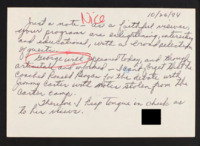 Nice
10/26/94
Just a note. As a faithful viewer,
your programs are enlightening, interesting
and educational, with a broad selection
of guests.
George Will appeared today, and though
articulate and I forget that he
coached Ronald Reagan for the debate with
Jimmy Carter with notes stolen from the
Carter camp.
Therefore I keep tongue in cheek as
to his views.